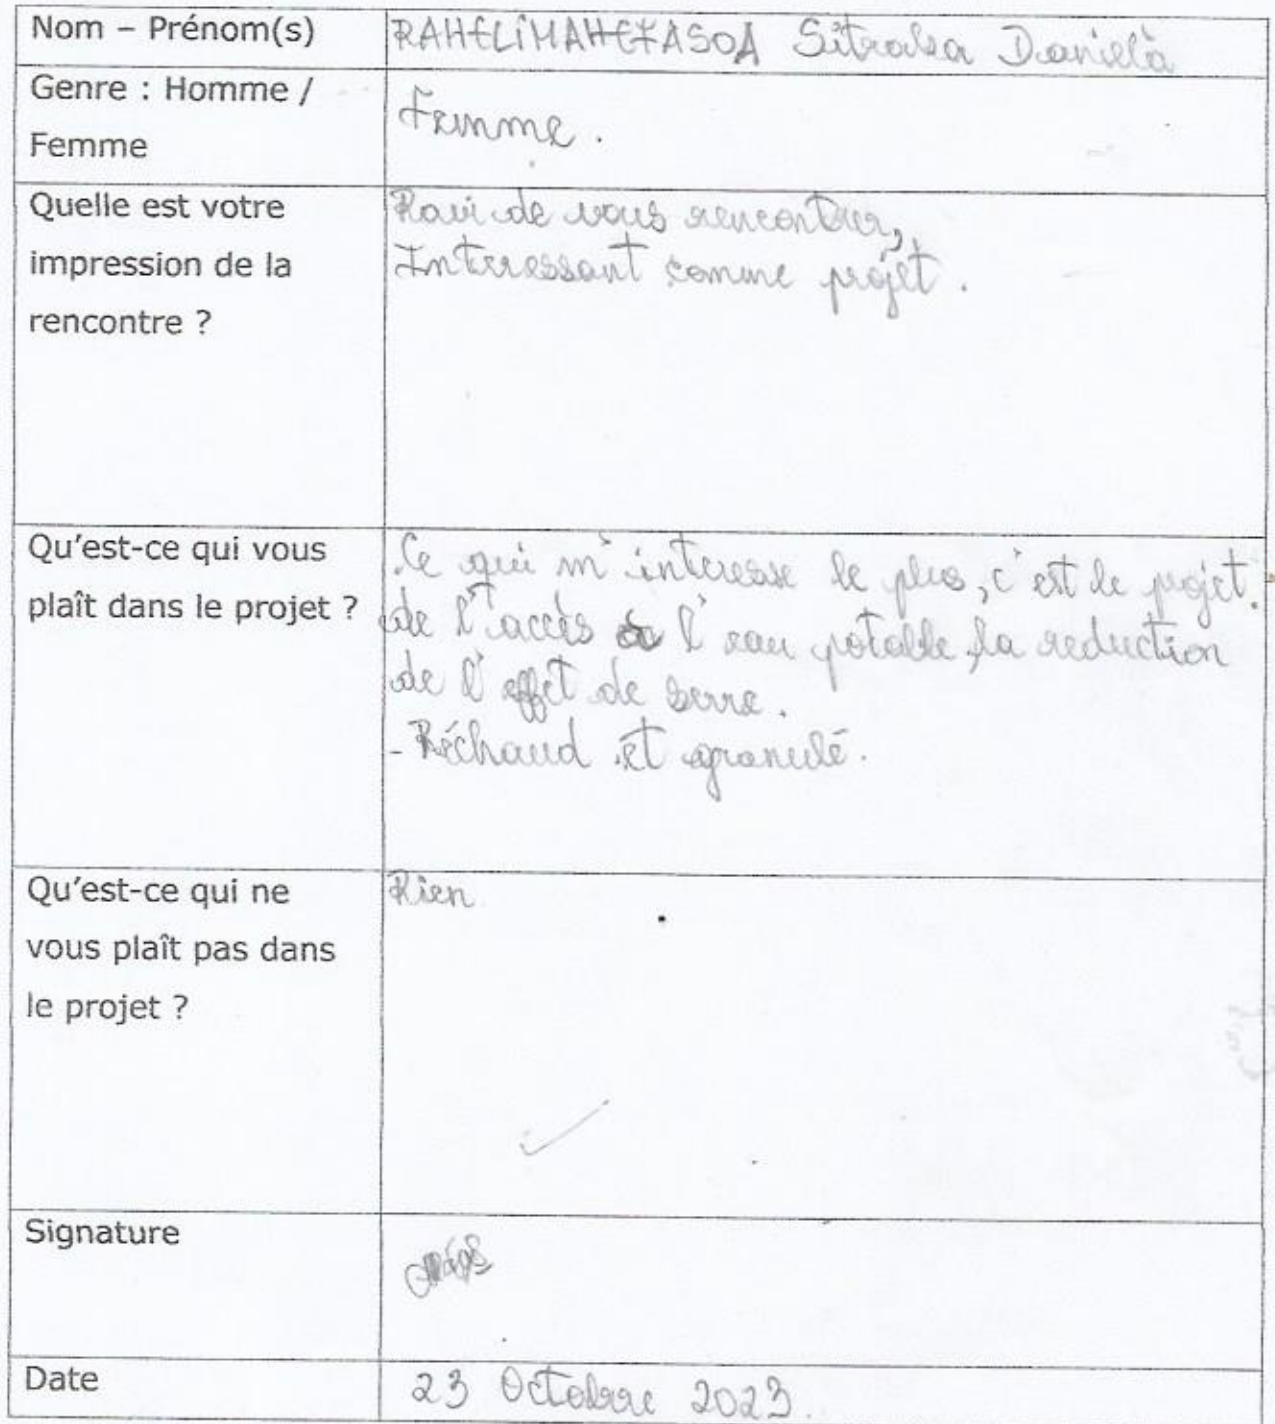 Nom – Prénom(s)
RAHELIMAHEFASOA Sitraka Daniella
Genre : Homme /
Femme
Femme.
Quelle est votre
impression de la
rencontre ?
Ravi de vous rencontrer,
Interessant comme projet.
Qu'est-ce qui vous
plaît dans le projet ?
Ce qui m'interesse le plus, c'est le projet.
de l'accès à l'eau potable, la reduction
de l'effet de serre.
- Réchaud et granulé.
Qu'est-ce qui ne
vous plaît pas dans
le projet ?
Rien
Signature
Date
23 Octobre 2023.